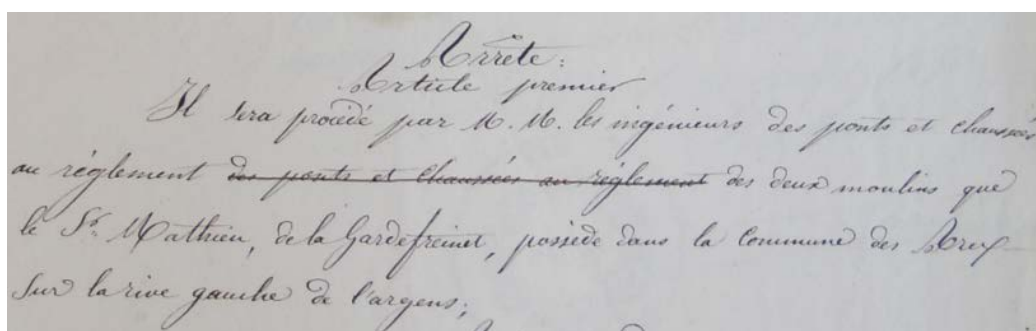 Arrête:
Article premier
Il sera procédé par M. M. les ingénieurs des ponts et chaussées
au réglement des ponts et chaussées au réglement des deux moulins que
le Sr. Mathieu, de la Gardefreinet, possède dans la Commune des Arcs
Sur la rive gauche de l'argens;